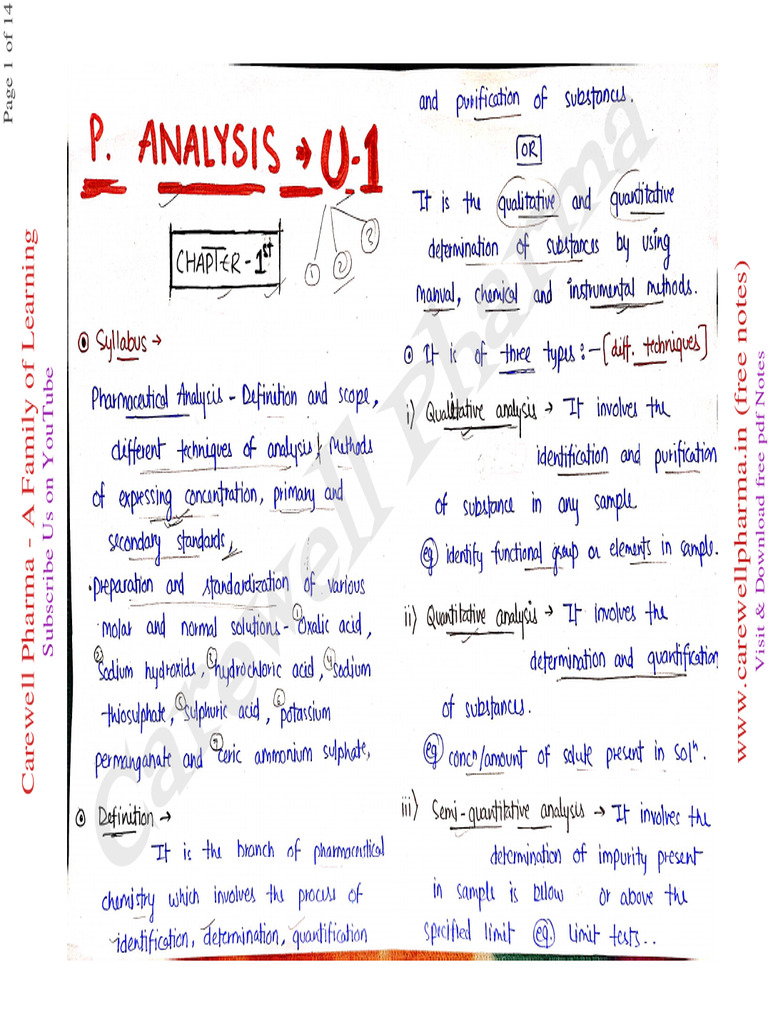 Page 1 of 14
Carewell Pharma - A Family of Learning
Subscribe Us on YouTube
P. ANALYSIS → U-1
① ② ③
CHAPTER - 1st
⊙ Syllabus →
Pharmaceutical Analysis - Definition and scope,
different techniques of analysis, Methods
of expressing concentration, primary and
secondary standards,
• Preparation and standardization of various
molar and normal solutions - ① Oxalic acid,
② Sodium hydroxids, ③ hydrochloric acid, ④ Sodium
-thiosulphate, ⑤ Sulphuric acid, ⑥ potassium
permanganate and ⑦ Ceric ammonium sulphate,
⊙ Definition →
It is the branch of pharmaceutical
chemistry which involves the process of
identification, determination, quantification
and purification of substances.
OR
It is the qualitative and quantitative
determination of substances by using
manual, chemical and instrumental methods.
⊙ It is of three types :- [diff. techniques]
i) Qualitative analysis → It involves the
identification and purification
of substance in any sample
eg identify functional group or elements in sample.
ii) Quantitative analysis → It involves the
determination and quantification
of substances.
eg concⁿ/amount of solute present in solⁿ.
iii) Semi-quantitative analysis → It involves the
determination of impurity present
in sample is below or above the
specified limit eg. limit tests..
Carewell Pharma
www.carewellpharma.in (free notes)
Visit & Download free pdf Notes